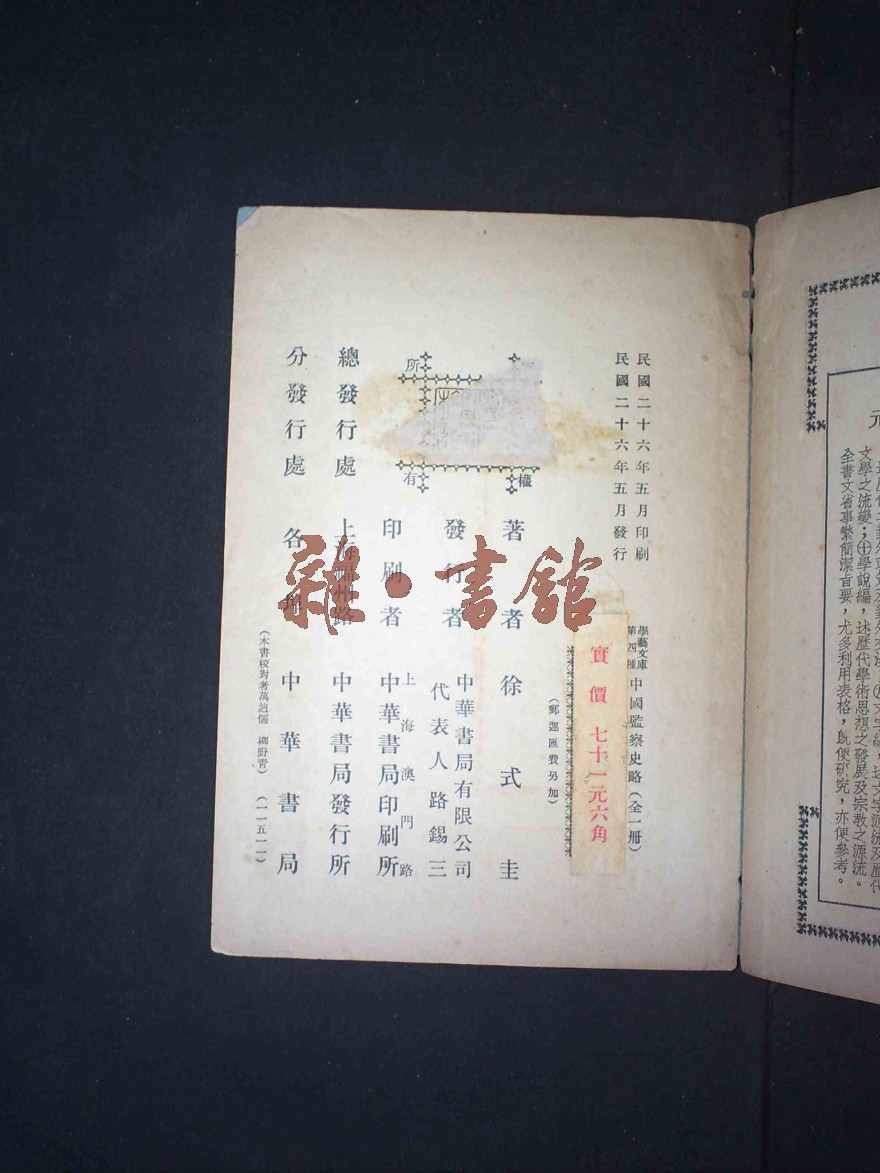 民國二十六年五月印刷
民國二十六年五月發行
學藝文庫
第四種
中國監察史略（全一冊）
實價 七十一元六角
（郵運匯費另加）
權
所
有
著者 徐式圭
發行者 中華書局有限公司
代表人 路錫三
印刷者 上海澳門路
中華書局印刷所
總發行處 上海福州路 中華書局發行所
分發行處 各埠 中華書局
（本書校對者萬迥儒 柳野青）（一一五一一）
雜·書館
元
文學之流變；㊉學說編，述歷代學術思想之發展及宗教之源流。
全書文省事繁簡潔旨要，尤多利用表格，既便研究，亦便參考。